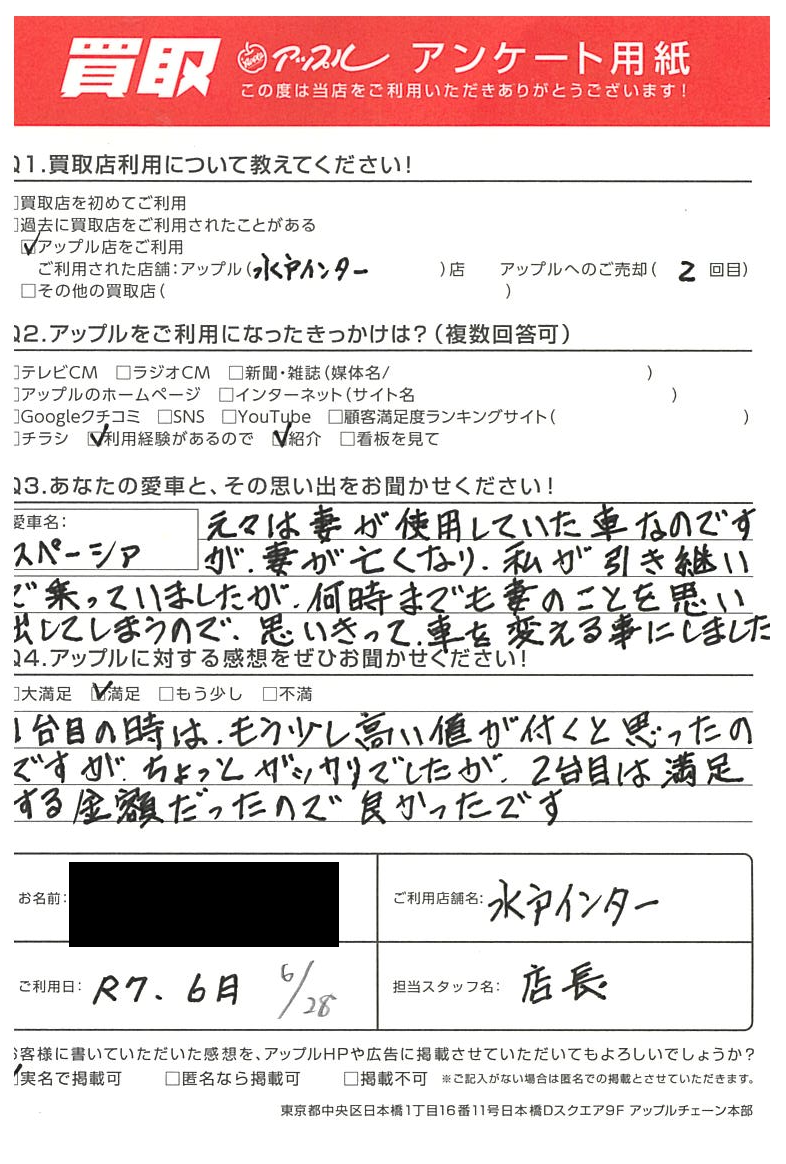 買取 アップル アンケート用紙
この度は当店をご利用いただきありがとうございます！
Q1.買取店利用について教えてください！
□買取店を初めてご利用
□過去に買取店をご利用されたことがある
☑アップル店をご利用
ご利用された店舗：アップル（水戸インター）店 アップルへのご売却（2回目）
□その他の買取店（ ）
Q2.アップルをご利用になったきっかけは？（複数回答可）
□テレビCM □ラジオCM □新聞・雑誌（媒体名/ ）
□アップルのホームページ □インターネット（サイト名 ）
□Googleクチコミ □SNS □YouTube □顧客満足度ランキングサイト（ ）
□チラシ ☑利用経験があるので ☑紹介 □看板を見て
Q3.あなたの愛車と、その思い出をお聞かせください！
愛車名：
スペーシア
元々は妻が使用していた車なのです
が、妻が亡くなり、私が引き継い
で乗っていましたが、何時までも妻のことを思い
出してしまうので、思いきって、車を変える事にしました
Q4.アップルに対する感想をぜひお聞かせください！
□大満足 ☑満足 □もう少し □不満
1台目の時は、もう少し高い値が付くと思ったの
ですが、ちょっとガッカリでしたが、2台目は満足
する金額だったので良かったです
お名前：
ご利用店舗名：水戸インター
ご利用日：R7.6月 6/28
担当スタッフ名：店長
お客様に書いていただいた感想を、アップルHPや広告に掲載させていただいてもよろしいでしょうか？
☑実名で掲載可 □匿名なら掲載可 □掲載不可 ※ご記入がない場合は匿名での掲載とさせていただきます。
東京都中央区日本橋1丁目16番11号日本橋Dスクエア9F アップルチェーン本部